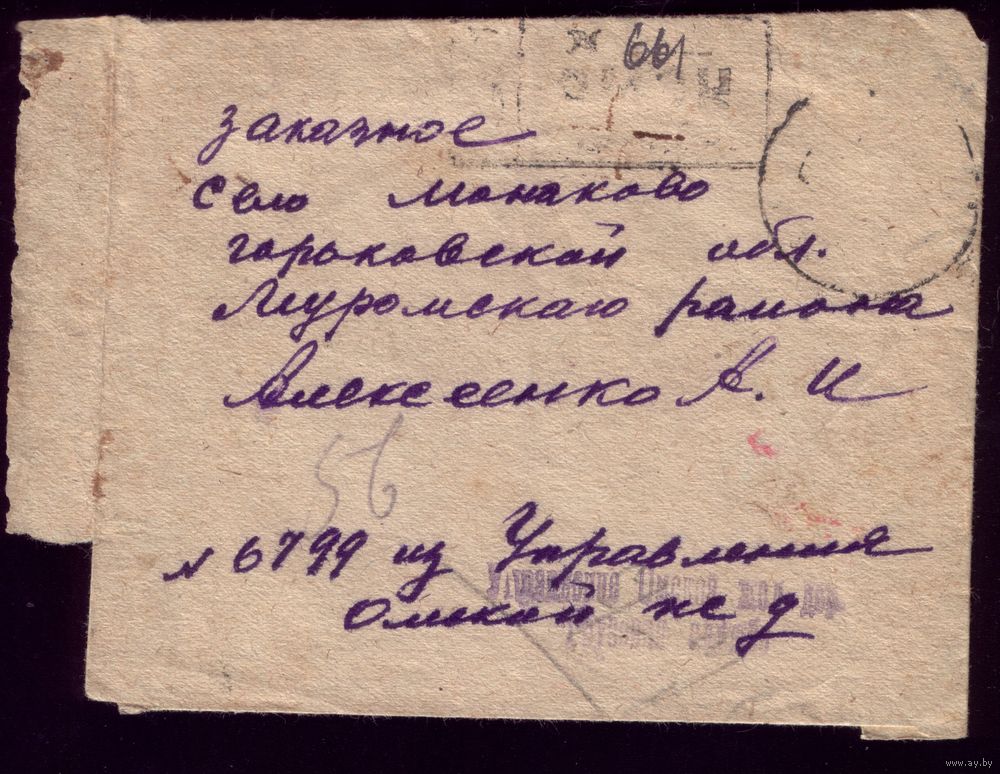 661
заказное
село Монаково
горьковской обл.
Муромскаю района
Алексеенко А. И
56
N 6799 из Управления
Омской ж д
Управление Омской жел дор
www.ay.by